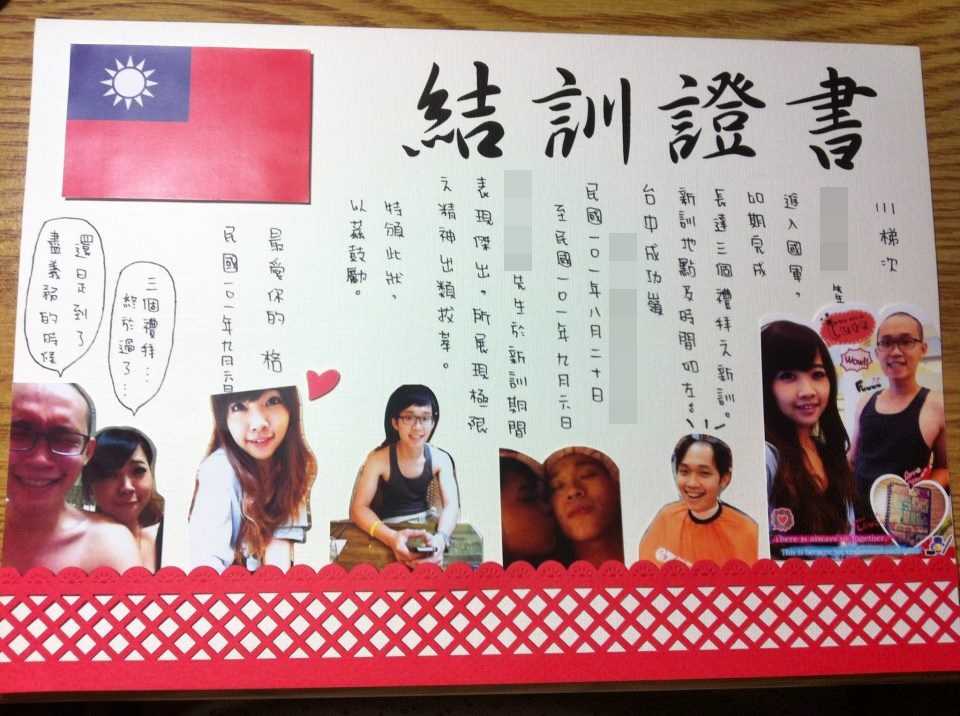 結訓證書
111梯次
生
進入國軍。
如期完成
長達三個禮拜之新訓。
新訓地點及時間如左：
台中成功嶺
民國一０一年八月二十日
至民國一０一年九月六日
先生於新訓期間
表現傑出。所展現極限
之精神出類拔萃。
特頒此狀，
以茲鼓勵。
最愛你的 格
民國一０一年九月六日
三個禮拜…
終於過了…
還是到了
盡義務的時候
Wow!!
There is always us together.
This is because we understand each other